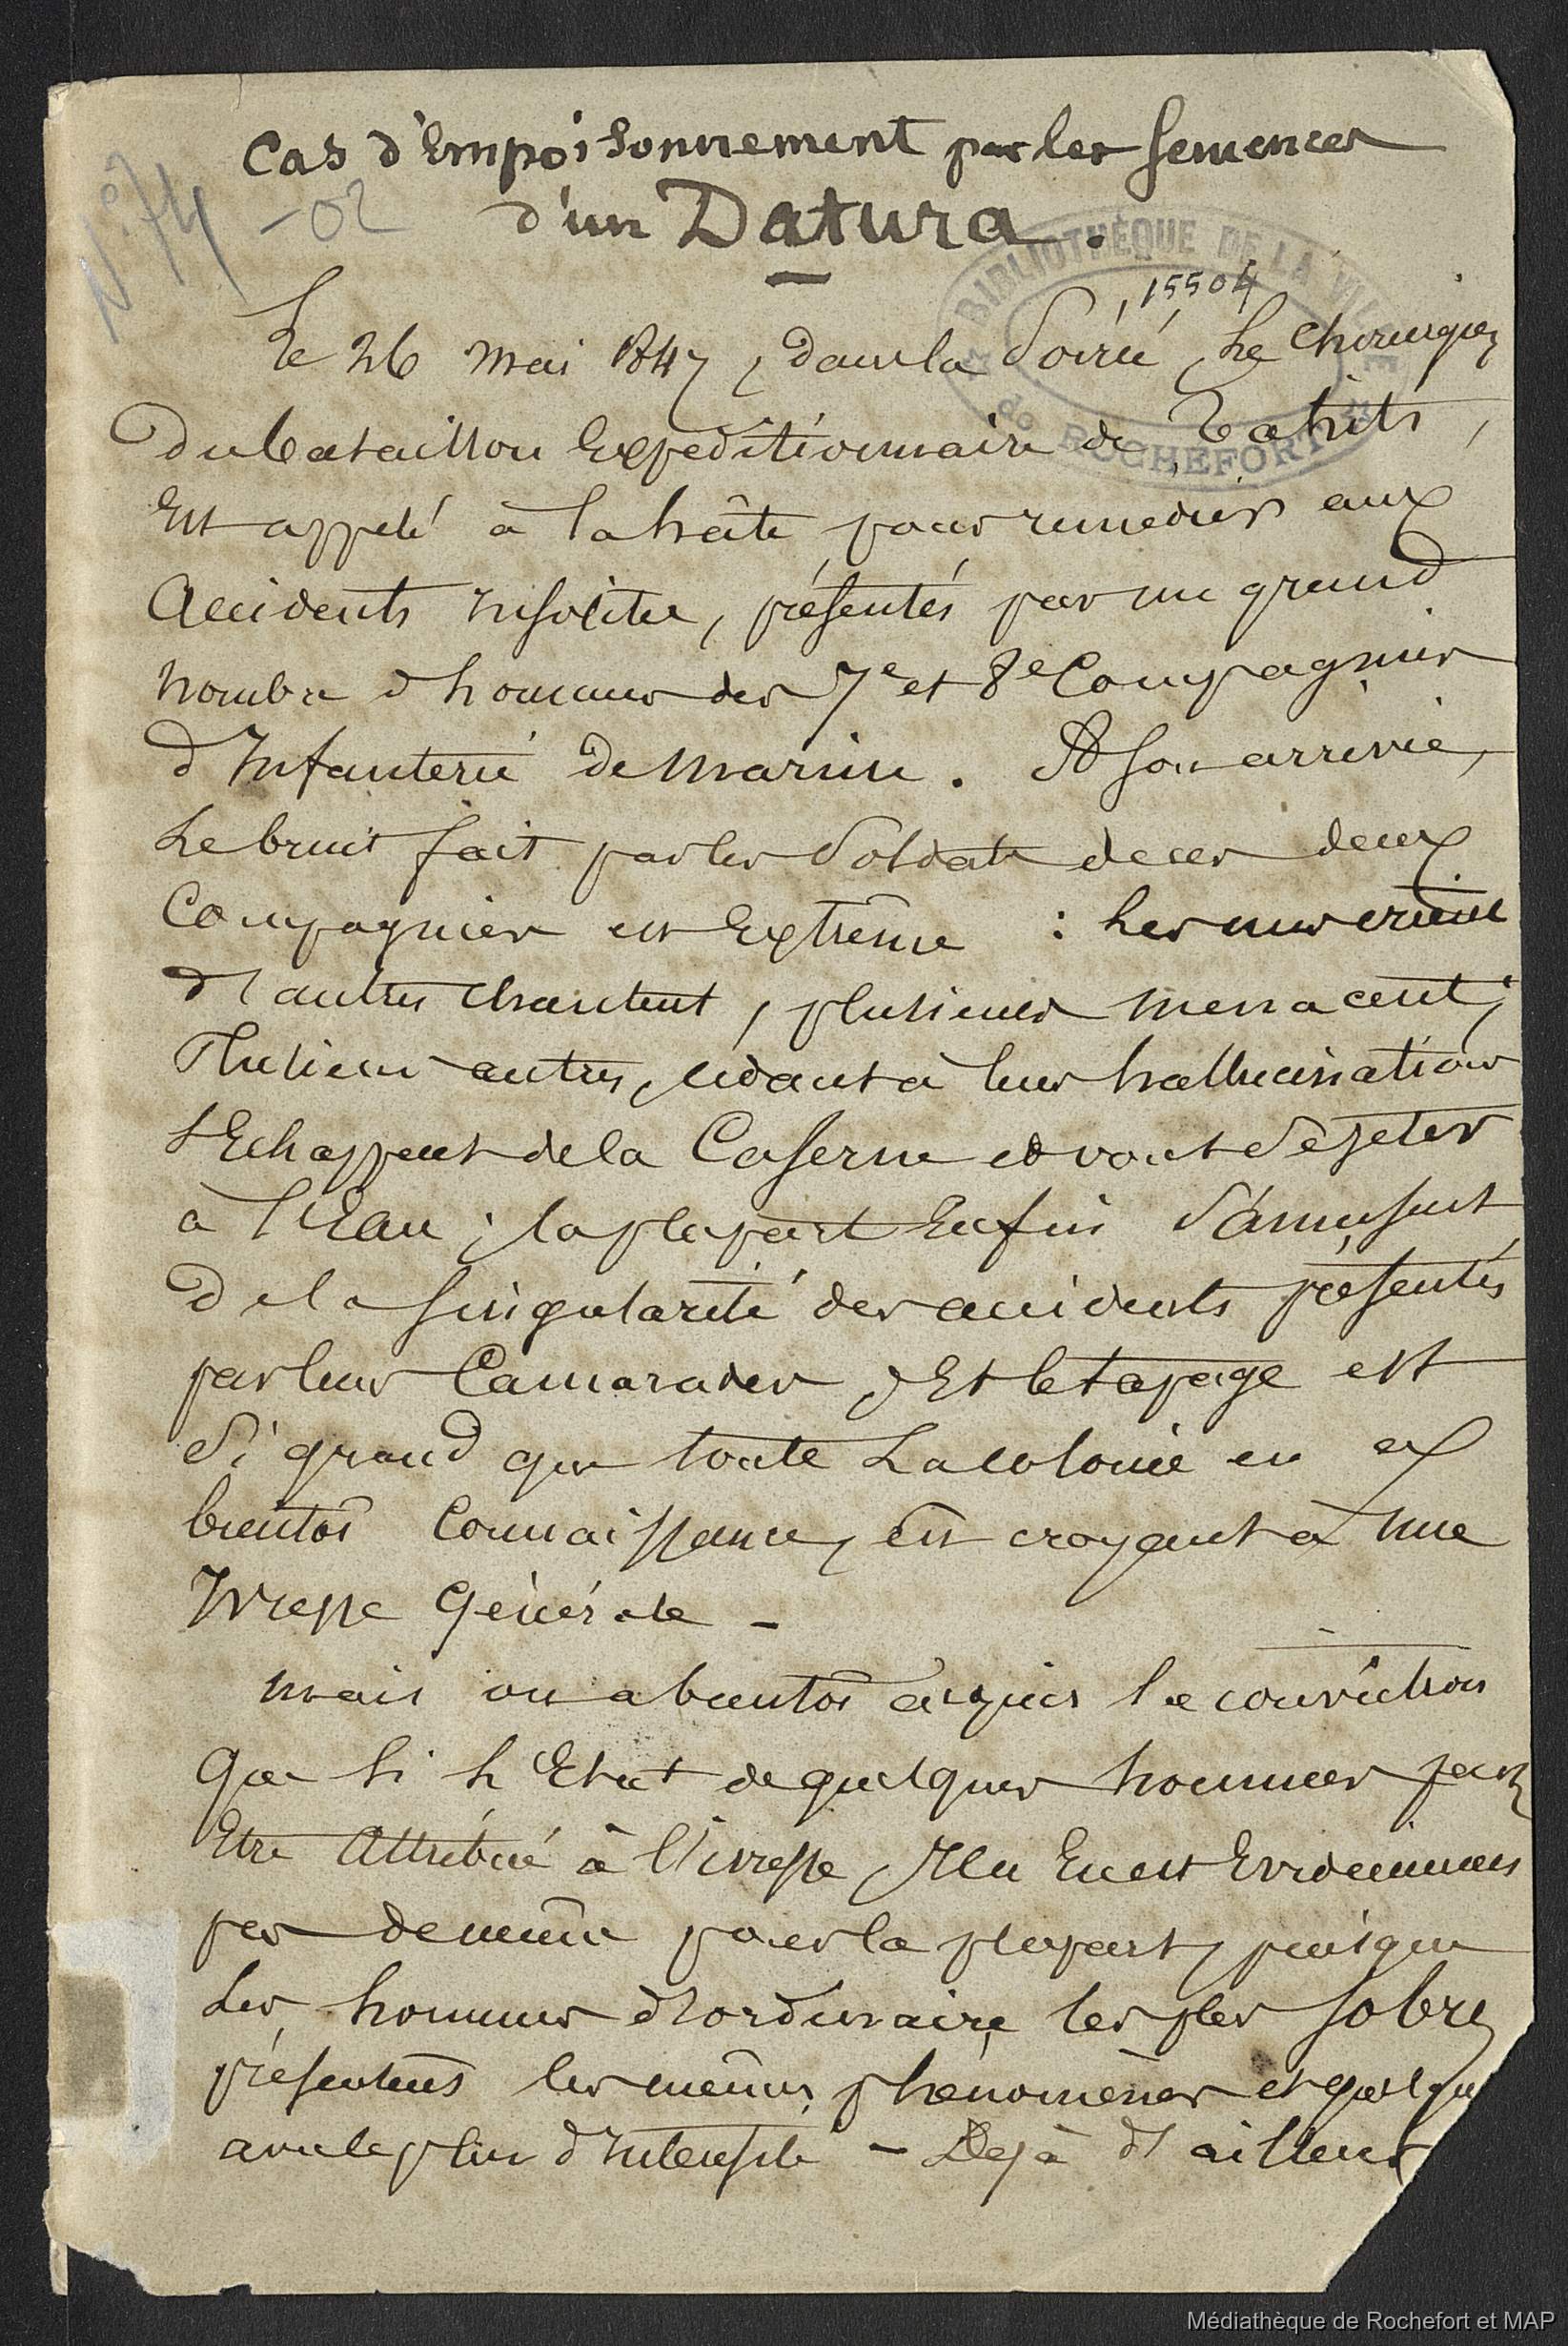 Cas d'Empoisonnement par les semences
d'un Datura.
N° 74 -02
BIBLIOTHÈQUE DE LA VILLE
de ROCHEFORT
15504
Le 26 mai 1847, dans la Soirée, Le Chirurgien
Du bataillon Expéditionnaire de Tahiti,
Est appelé à la hâte pour remedier aux
Accidents Insolites, présentés par un grand
nombre d'hommes des 7e et 8e Compagnies
d'Infanterie De marine. A son arrivée,
Le bruit fait par les Soldats de ces deux
Compagnies est Extrême : Les uns crient
d'autres chantent, plusieurs menacent;
Plusieurs autres, cédant à leurs hallucinations
s'Echappent de la Caserne et vont Se jeter
à l'Eau ; la plupart Enfin S'amusent
De la singularité des accidents présentés
par leurs Camarades, Et le tapage est
Si grand que toute La colonie en a
bientôt Connaissance, en croyant à une
Ivresse Générale -
mais on a bientôt acquis la conviction
Que si L'Etat de quelques hommes peut
Etre Attribué à l'ivresse, Il n'En est Evidemment
pas de même pour la plupart, puisque
Les hommes d'ordinaire les plus sobres
présentent les mêmes phénomènes et
avec plus d'Intensité - Déjà d'ailleurs
Médiathèque de Rochefort et MAP